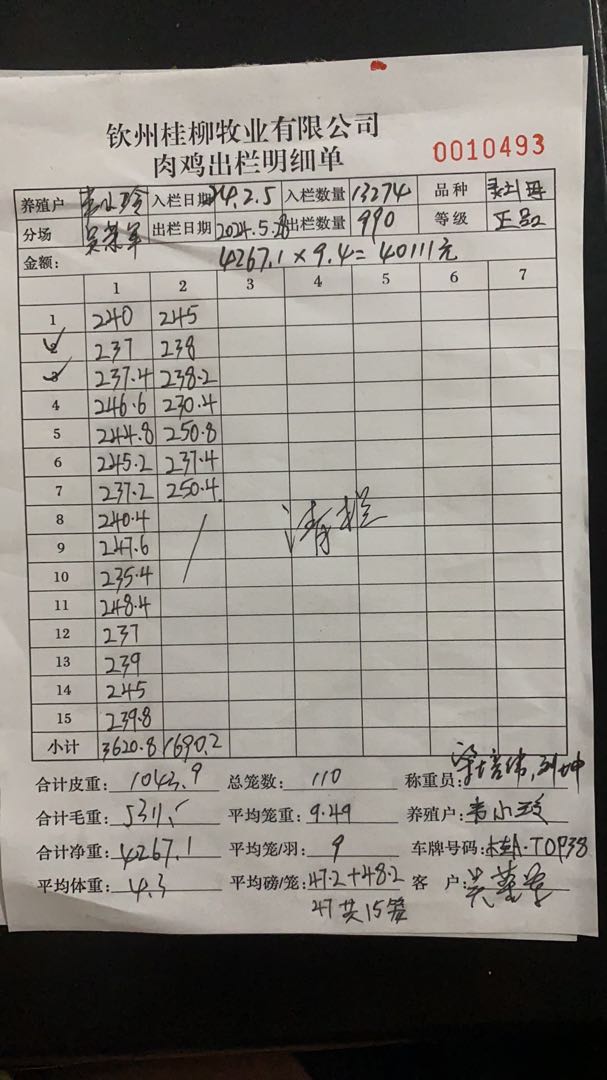 钦州桂柳牧业有限公司
肉鸡出栏明细单 0010493
养殖户 韦小玲 入栏日期 24.2.5 入栏数量 13274 品种
分场 吴荣军 出栏日期 2024.5.28 出栏数量 990 等级 正品
金额: 4267.1 × 9.4 = 40111元
1 2 3 4 5 6 7
1 240 245
2 237 238
3 237.4 238.2
4 246.6 230.4
5 244.8 250.8
6 245.2 237.4
7 237.2 250.4
8 240.4 清栏
9 247.6
10 235.4
11 248.4
12 237
13 239
14 245
15 239.8
小计 3620.8 1690.2
合计皮重: 1043.9 总笼数: 110 称重员:
合计毛重: 5311 平均笼重: 9.49 养殖户: 韦小玲
合计净重: 4267.1 平均笼/羽: 9 车牌号码: 桂A·T0P38
平均体重: 4.3 平均磅/笼: 47.2+48.2 客 户:
47共15笼